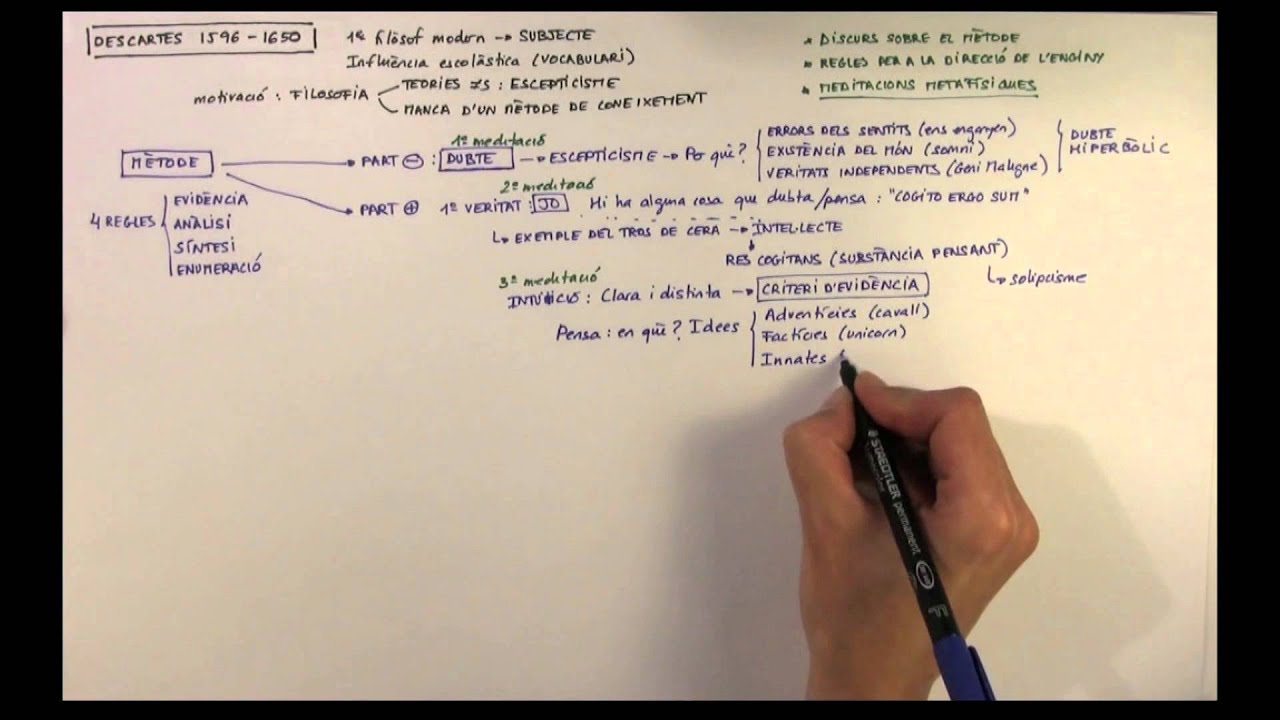 DESCARTES 1596-1650
1er filòsof modern → SUBJECTE
Influència escolàstica (VOCABULARI)
motivació : FILOSOFIA
TEORIES ≠s : ESCEPTICISME
MANCA D'UN MÈTODE DE CONEIXEMENT
* DISCURS SOBRE EL MÈTODE
* REGLES PER A LA DIRECCIÓ DE L'ENGINY
* MEDITACIONS METAFÍSIQUES
MÈTODE
4 REGLES
EVIDÈNCIA
ANÀLISI
SÍNTESI
ENUMERACIÓ
1ª meditació
PART ⊖ : DUBTE → ESCEPTICISME → Po què?
ERRORS DELS SENTITS (ens enganyen)
EXISTÈNCIA DEL MÓN (somni)
VERITATS INDEPENDENTS (Geni Maligne)
DUBTE
HIPERBÒLIC
2ª meditació
PART ⊕ 1ª VERITAT : JO Hi ha alguna cosa que dubta/pensa : "COGITO ERGO SUM"
↳ EXEMPLE DEL TROS DE CERA → INTEL·LECTE
RES COGITANS (SUBSTÀNCIA PENSANT)
↳ solipcisme
3ª meditació
INTUÏCIÓ : Clara i distinta → CRITERI D'EVIDÈNCIA
Pensa : en què? Idees
Adventícies (cavall)
Factícies (unicorn)
Innates (
STAEDTLER permanent
F